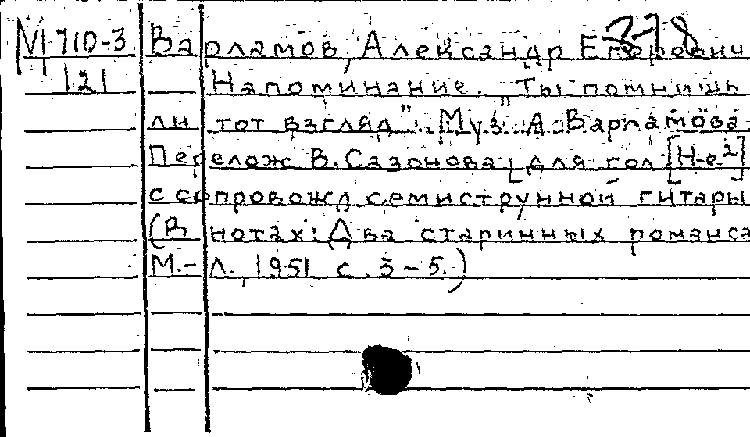 М 710-3 Варламов, Александр Егорович 378
121 Напоминание. „Ты помнишь
ли тот взгляд". Муз. А. Варламова.
Перелож. В. Сазонова [для гол. [Н-е²]
с сопровожд. семиструнной гитары
(В нотах: Два старинных романса
М.-Л., 1951 с. 3-5.)